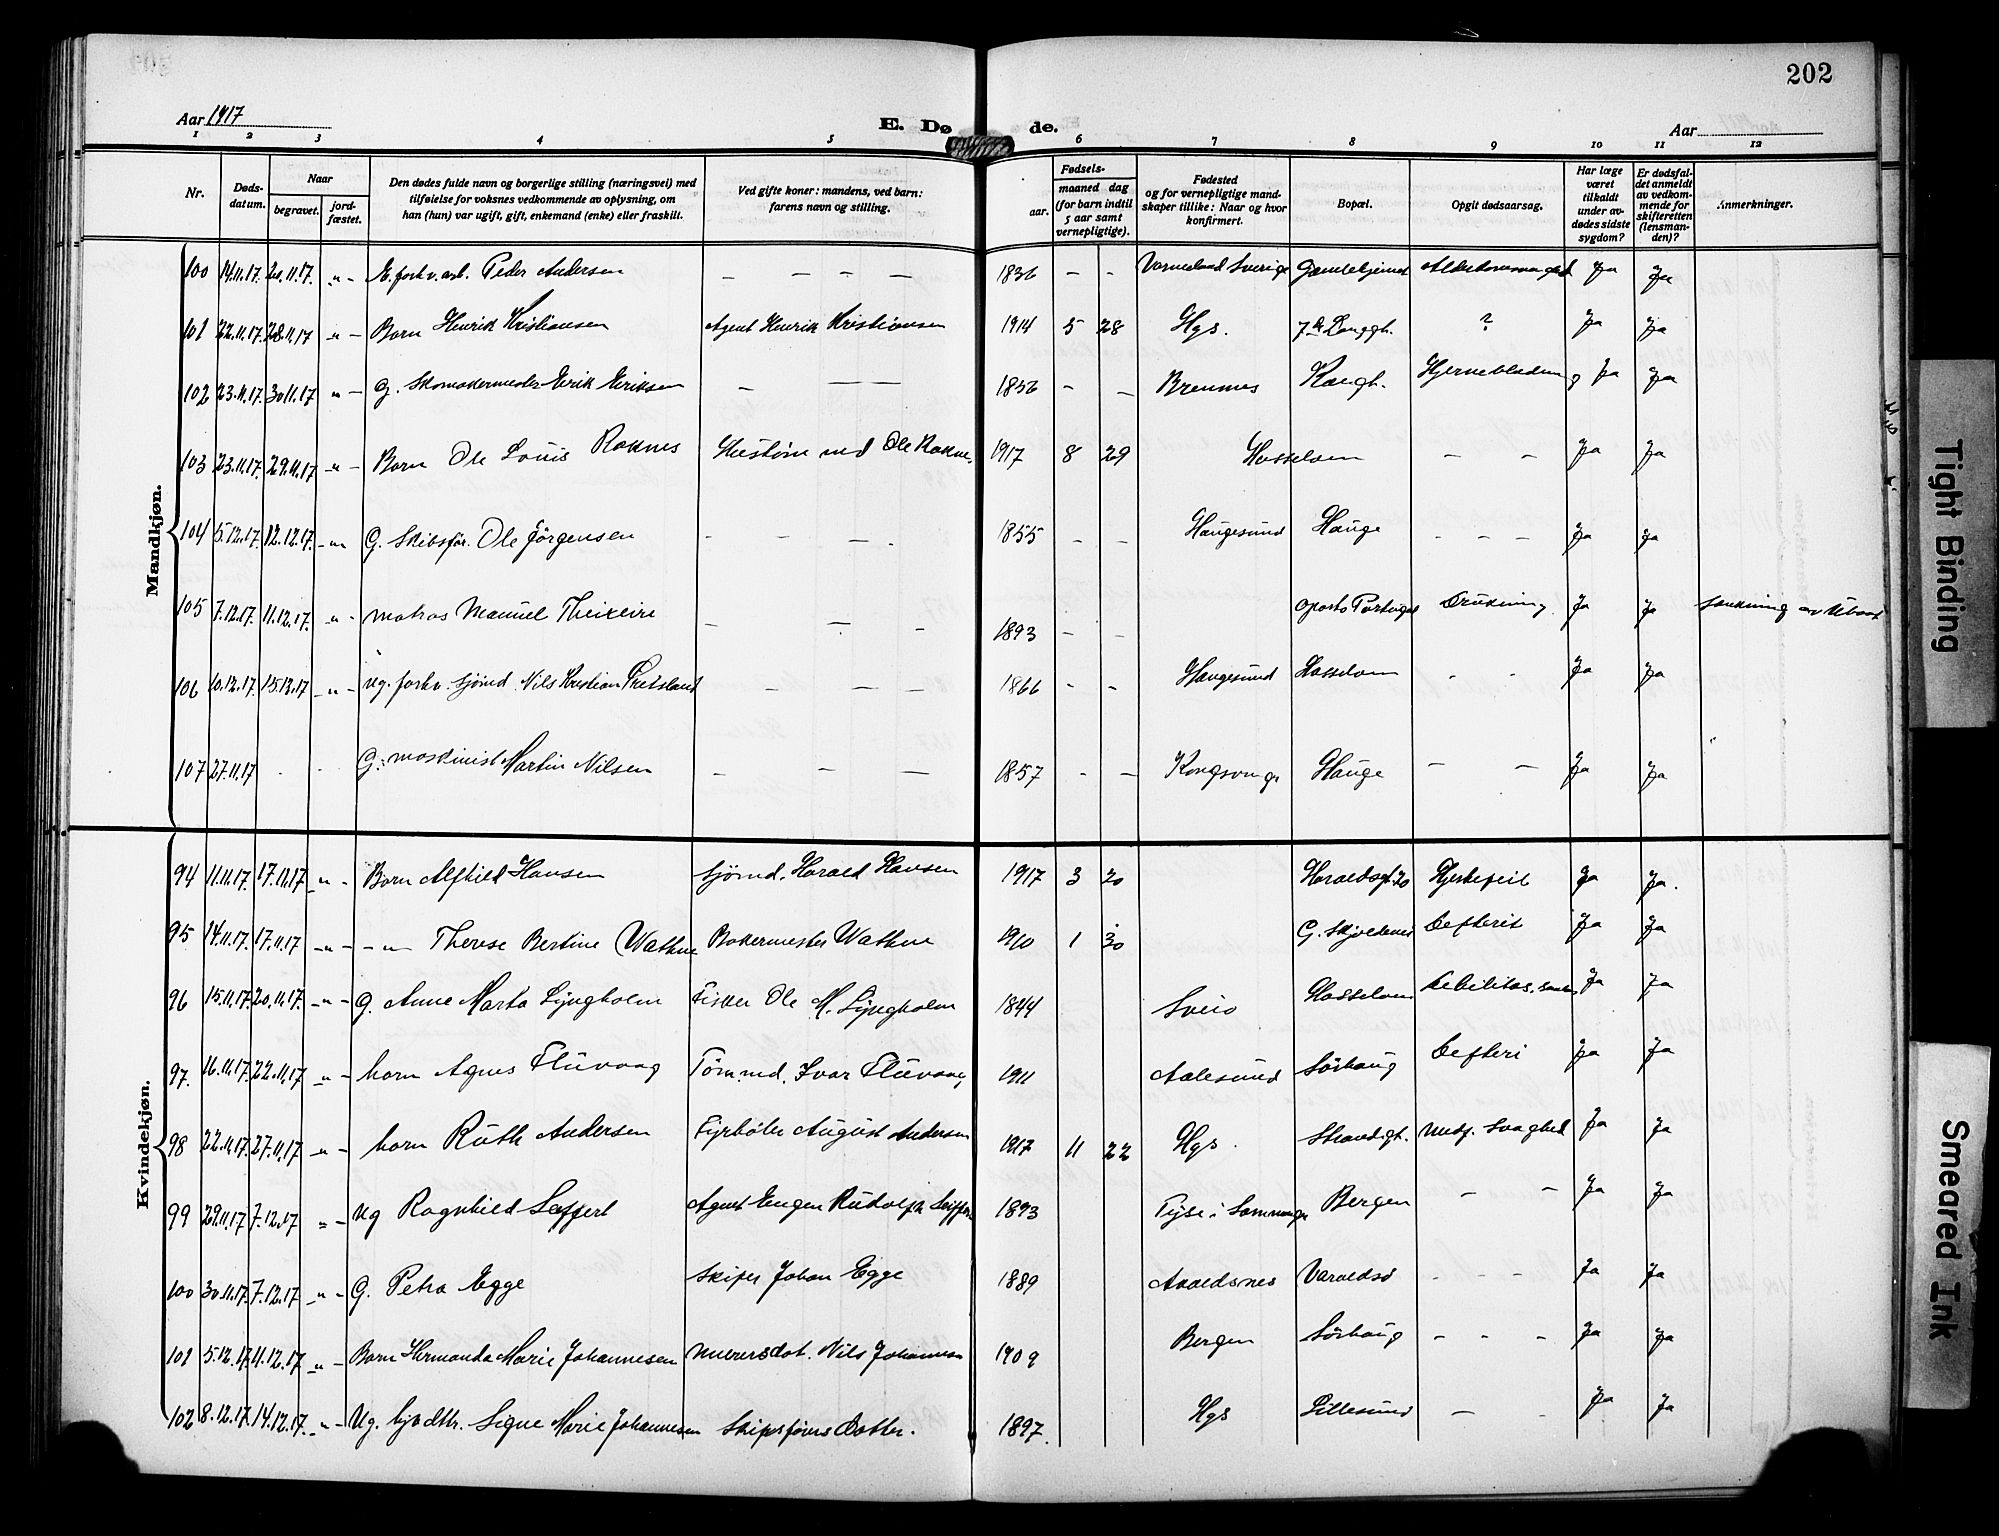 202
Aar 1917
E. Døde.
Aar
1 2 3 4 5 6 7 8 9 10 11 12
Nr.
Dødsdatum.
Naar
begravet.
jordfæstet.
Den dødes fulde navn og borgerlige stilling (næringsvei) med tilføielse for voksnes vedkommende av oplysning, om han (hun) var ugift, gift, enkemand (enke) eller fraskilt.
Ved gifte koner: mandens, ved barn: farens navn og stilling.
Fødsels-
aar.
maaned dag
(for barn indtil 5 aar samt vernepligtige).
Fødested og for vernepligtige mandskaper tillike: Naar og hvor konfirmert.
Bopæl.
Opgit dødsaarsag.
Har læge været tilkaldt under avdødes sidste sygdom?
Er dødsfaldet anmeldt av vedkommende for skifteretten (lensmanden)?
Anmerkninger.
Mandkjøn.
100 14.11.17. 20.11.17. -"- E. forhv. arb. Peder Andersen — — — — 1836 - - Varmeland Sverige Gamlehjemmet Ja Ja
101 22.11.17. 28.11.17 -"- Barn Henrik Kristiansen Agent Henrik Kristiansen 1914 5 28 Hgs. ? Ja Ja
102 23.11.17. 30.11.17 -"- G. Skomakermester Erik Eriksen — — — 1856 - - Bremnes Hjerneblødning Ja Ja
103 23.11.17. 29.11.17 -"- Barn Ole Louis Roknes Ole Rokne 1917 8 29 Hasseloen - - Ja Ja
104 5.12.17. 12.12.17. -"- G. Skibsfør. Ole Jörgensen - - - 1855 - - Haugesund Hauge - - - Ja Ja
105 7.12.17. 11.12.17. -"- matros Manuel Theixeire — — - 1893 - - Oporto Portugal Drukning Ja Ja Sænkning av Ubaat
106 10.12.17. 15.12.17 -"- Ug. forhv. sjömd. Nils Kristian — — — 1866 - - Haugesund Hasseloen - - Ja Ja
107 27.11.17 - - G. maskinist Martin Nilsen — — — 1857 - - Kongsvinger Hauge — — Ja Ja
Kvindekjøn.
94 11.11.17. 17.11.17 -"- Barn Alfhild Hansen sjömd. Harald Hansen 1917 3 20 Haraldsgt. 20 Hjertefeil Ja Ja.
95 14.11.17. 17.11.17 -"- -"- Therese Bertine Wathne Bakermester Wathne 1910 1 30 G. Skjoldenes Defterit Ja Ja
96 15.11.17. 20.11.17 -"- G. Anne Marta Lyngholm Fisker Ole M. Lyngholm 1844 Sveio Hasseloen Debilitas. Ja Ja
97. 16.11.17. 22.11.17 -"- barn Agnes Fluvaag Tömmd. Ivar Fluvaag 1911 Aalesund Sörhaug Defteri Ja Ja
98 22.11.17 27.11.17 -"- barn Ruth Andersen Fyrböter August Andersen 1917 11 22 Hgs. Strandgt. Medf. Svaghed Ja Ja
99 29.11.17 7.12.17 -"- Ug Ragnhild Seffert Agent Eugen Rudolph 1893 Tyse i Bergen — — Ja Ja
100 30.11.17. 7.12.17 -"- G. Petra Egge Skiper Johan Egge 1889 Avaldsnes Varaldsö - - - Ja Ja
101 5.12.17 11.12.17 -"- Barn Hermanda Marie Johannesen Murersdat. Nils Johannesen 1909 Bergen Sörhaug - - - Ja Ja
102 8.12.17. 14.12.17. -"- Ug. Signe Marie Johannesen Skipsförers Datter. 1897. Hgs Lillesund — - Ja Ja
Tight Binding
Smeared Ink